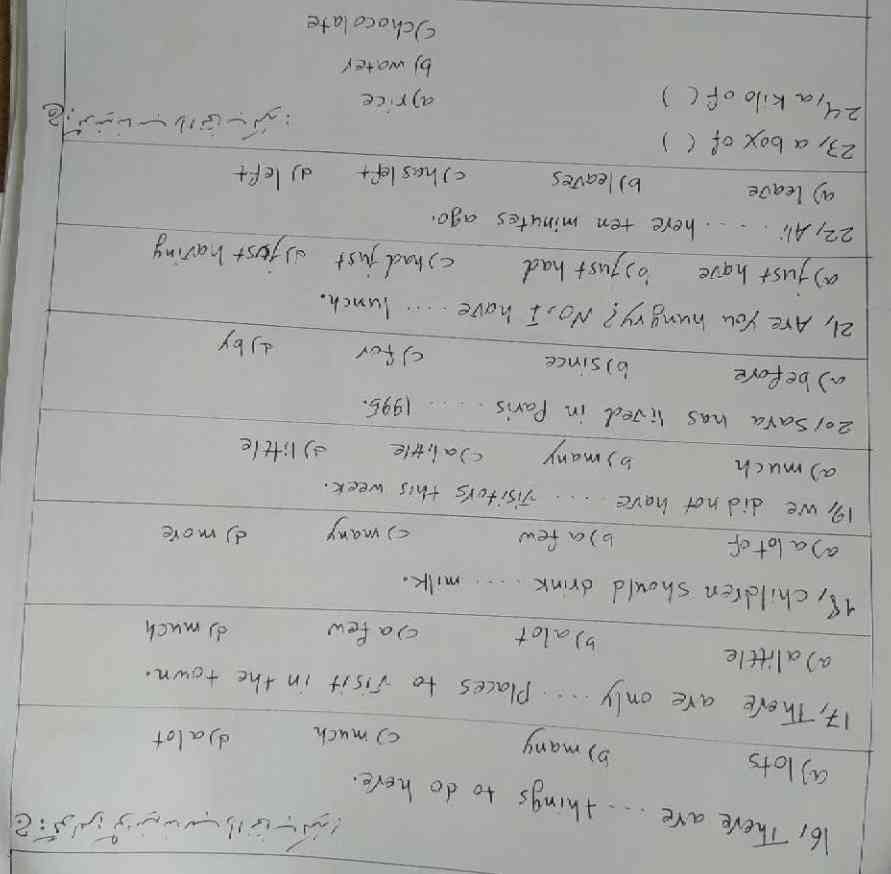 16, There are ..... things to do here.
a) lots b) many c) much d) alot
17, There are only .... places to visit in the town.
a) alittle b) alot c) a few d) much
18, children should drink ..... milk.
a) alotof b) a few c) many d) more
19, we did not have ..... visitors this week.
a) much b) many c) alittle d) little
20, Sara has lived in Paris ..... 1995.
a) before b) since c) for d) by
21, Are you hungry? No, I have .... lunch.
a) just have b) just had c) had just d) just having
22, Ali ..... here ten minutes ago.
a) leave b) leaves c) has left d) left
23, a box of ( )
24, a kilo of ( )
a) rice
b) water
c) chocolate